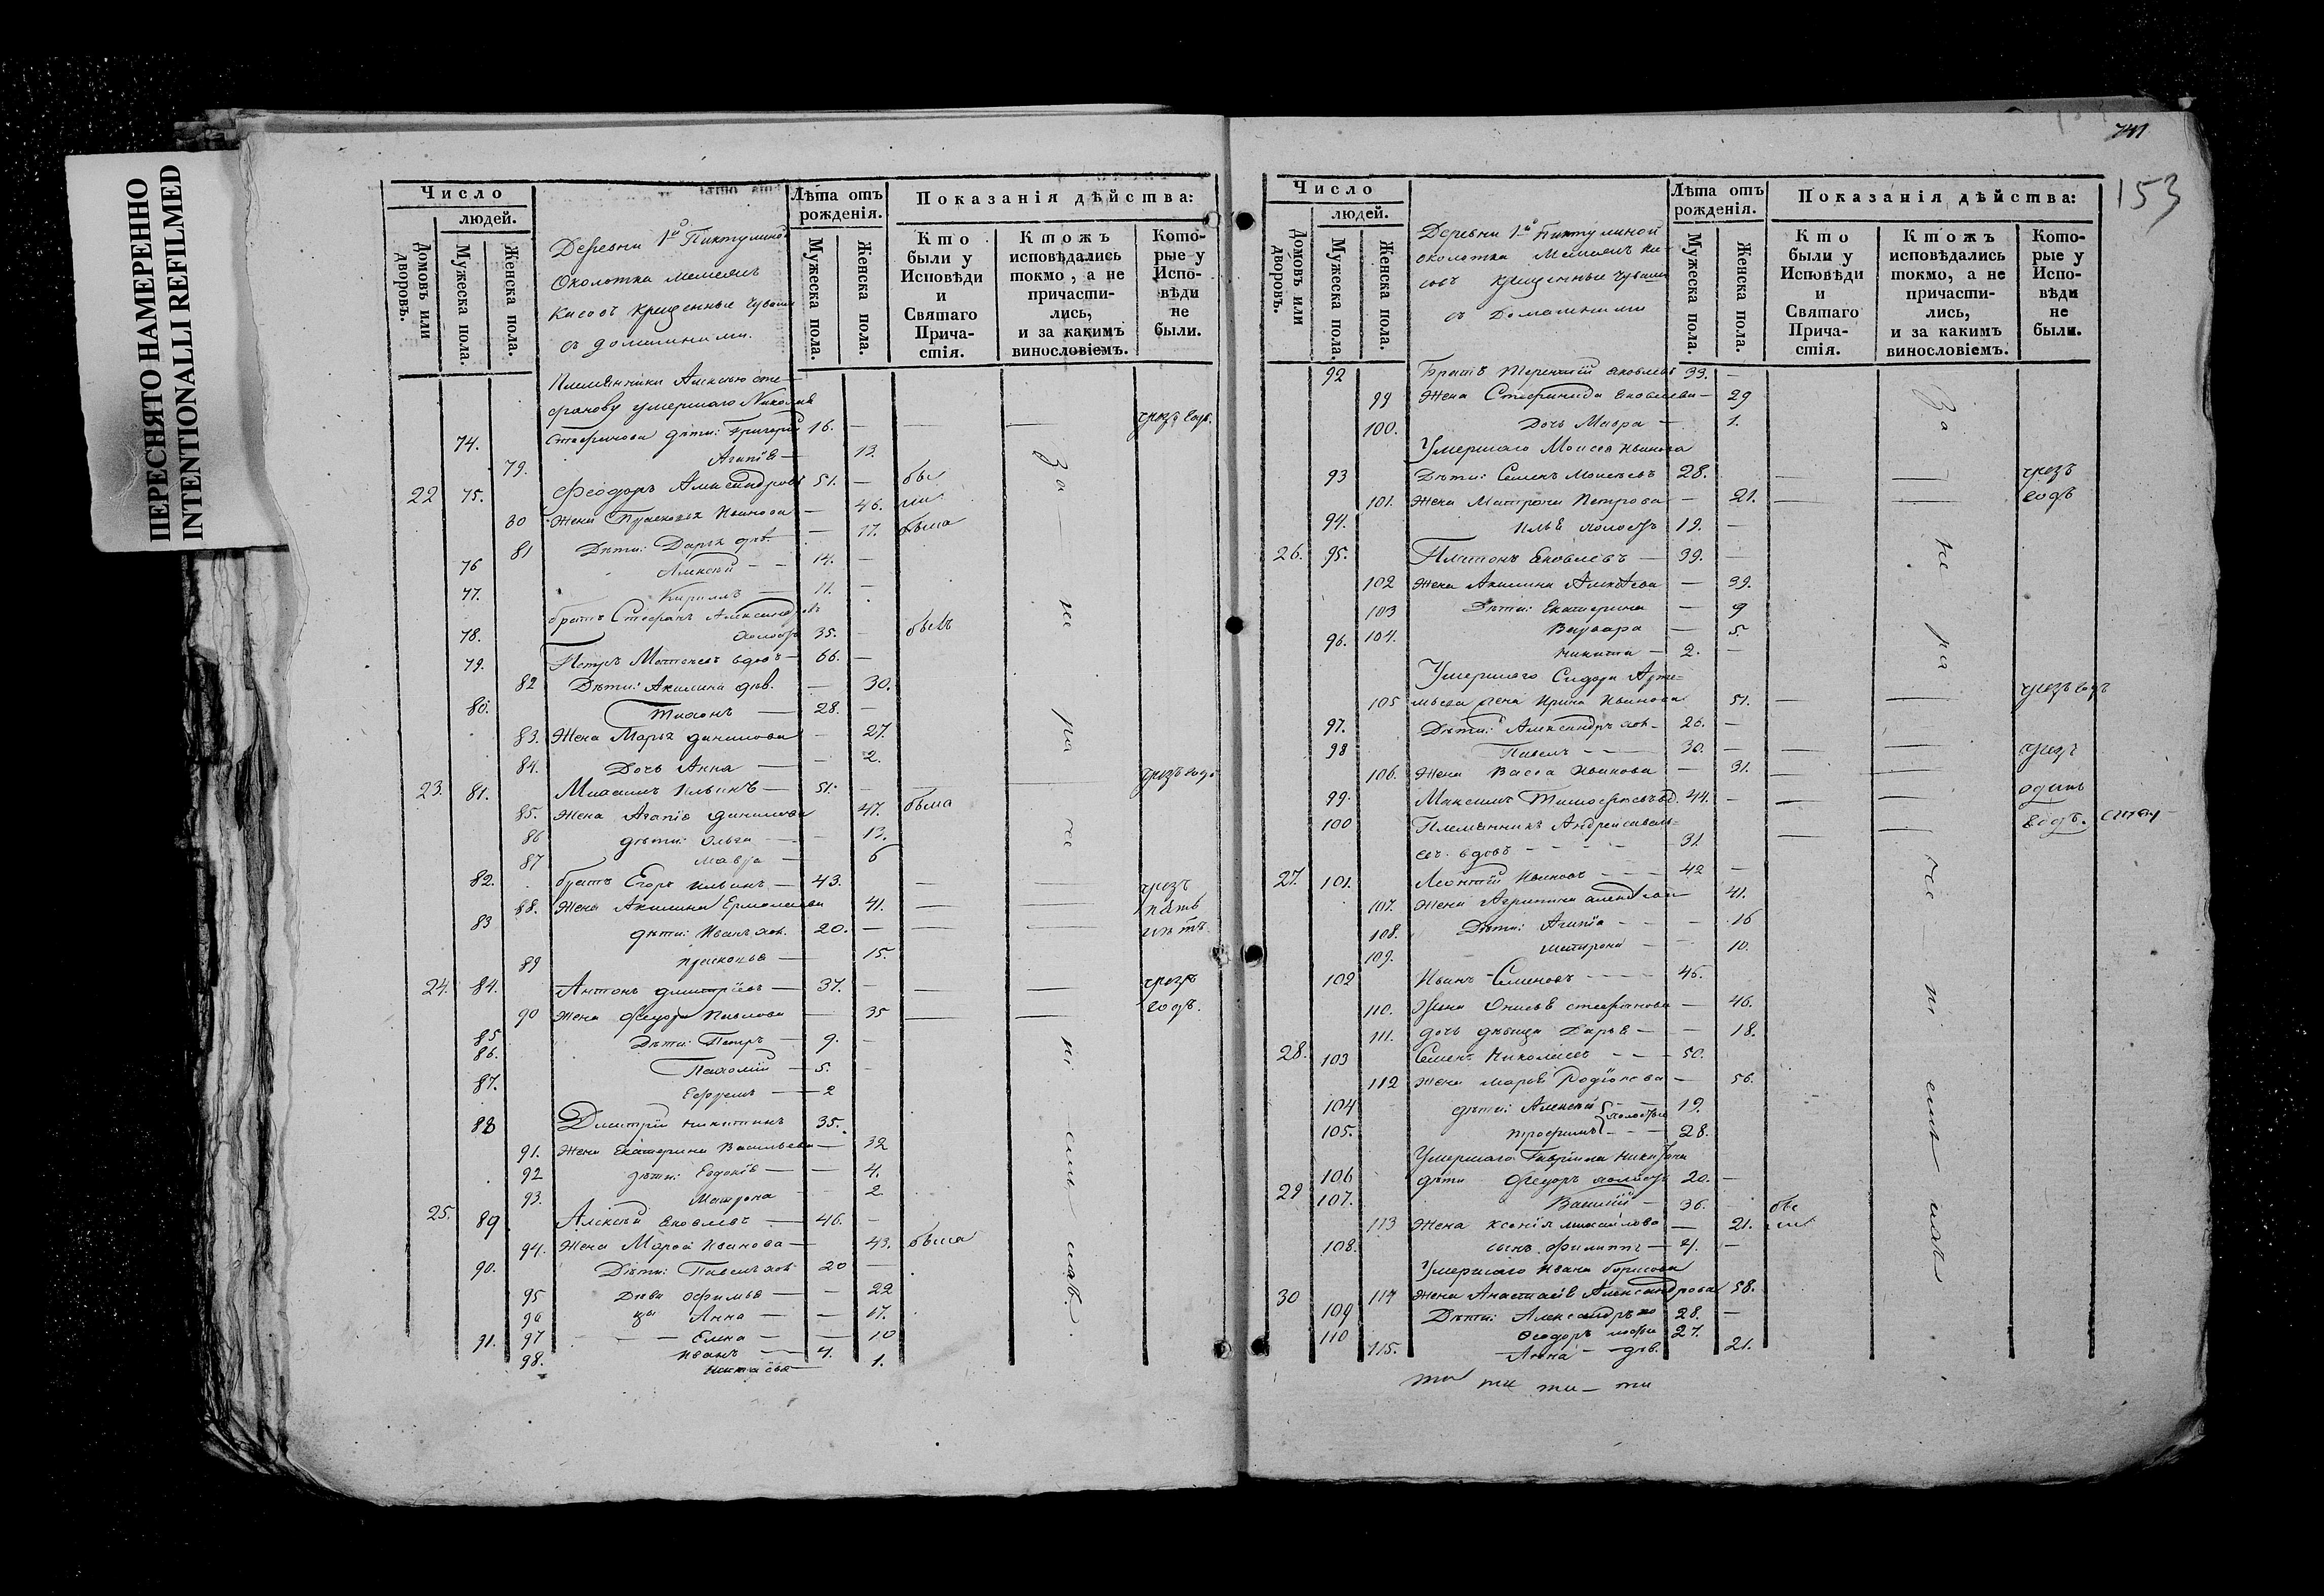 ПЕРЕСНЯТО НАМЕРЕННО
INTENTIONALLI REFILMED
Число
людей.
Домовъ или дворовъ.
Мужеска пола.
Женска пола.
Деревни 1й Пиктулиной
Околотка
Касовъ крещенные Чуваши
съ домашними.
Лѣта отъ рожденія.
Мужеска пола.
Женска пола.
Показанія дѣйства:
Кто были у Исповѣди и Святаго Причастія.
Ктожъ исповѣдались токмо, а не причастились, и за какимъ винословіемъ.
Которые у Исповѣди не были.
Племянники Алексѣю Сте-
фанову умершаго Николая
74. Стефанова дѣти: Григорій 16. — — — чрезъ годъ.
79. Агапія — 13.
22 75. Феодоръ Александровъ 51. — бы
80 Жена Прасковья Иванова — 46. ли
81 Дѣти: Дарья дѣв. — 17. была
76 Алексѣй — — 14. —
77. Кириллъ — 11. —
братъ Стефанъ Александровъ
78. холостъ 35. — былъ
79. Петръ Матвеевъ вдовъ — 66. —
82 Дѣти: Акилина дѣв. — 30.
80. Тихонъ — 28. —
83. Жена Марья Данилова — 27.
84. Дочь Анна — — 2.
23. 81. Максимъ Ильинъ — 51. — — — чрезъ годъ
85. Жена Агапія Данилова 47. была
86 дѣти: Ольга — — 13.
87 Мавра — 6
82. братъ Егоръ Ильинъ — 43. — — чрезъ
88. Жена Акилина Ермолаева 41. — — пять
83 дѣти: Иванъ хол. 20. — — — лѣтъ.
89 Прасковья — 15.
24. 84. Антонъ Дмитріевъ — 37. — — — чрезъ
90 Жена Федора Павлова — 35 — — годъ.
85 Дѣти: Петръ — 9. —
86. Пахомій — 5. —
87. Ефремъ — 2
88 Дмитрій Никитинъ 35.
91. Жена Екатерина Васильева — 32
92 дѣти: Евдокія — — 4.
93. Матрона — — 2
25. 89 Алексѣй Яковлевъ — 46. —
94. Жена Марѳа Иванова — 43. была
90. Дѣти: Павелъ хол. 20 —
95 Дѣви Офимья — — 22
96 цы Анна — — 17.
97 — — — Елена — — 10
91. Иванъ — 4.
98. 1.
За — не ра че ні емъ ихъ.
741
153
Число
людей.
Домовъ или дворовъ.
Мужеска пола.
Женска пола.
Деревни 1й Пиктулиной
околотка Ка-
совъ крещенные Чуваши
съ Домашними
Лѣта отъ рожденія.
Мужеска пола.
Женска пола.
Показанія дѣйства:
Кто были у Исповѣди и Святаго Причастія.
Ктожъ исповѣдались токмо, а не причастились, и за какимъ винословіемъ.
Которые у Исповѣди не были.
92 Братъ Терентій Яковлевъ 33. —
99 Жена Стефанида Яковлева — 29
100. Дочь Мавра — 1.
Умершаго Моисея Иванова
93 Дѣти: Семенъ Моисѣевъ 28. — — чрезъ
101. Жена Матрона Петрова — 21. — — годъ
94. Илья холостъ 19. —
26. 95. Платонъ Яковлевъ — 39. —
102 Жена Акилина Алексѣева — 39.
103 Дѣти: Екатерина — 9
104. Варвара — 5.
96. Никита — 2. —
Умершаго Сидора Арте-
105 мьева жена Ирина Иванова 51. — — чрезъ годъ
97. Дѣти: Александръ хол. — 26. —
98 Павелъ — — — 30. — — — чрезъ
106. Жена Васса Иванова — 31. — — одинъ
99. Максимъ Тимофеевъ вд. 44. — — — годъ.
100 Племянникъ Андрей Савель-
евъ вдовъ — — — — 31 — —
27. 101. Леонтій Ивановъ — — — 42 —
107. Жена Агрипина Алексѣева 41.
108. Дѣти: Агапія — — — 16
109. Матрона — — 10.
102 Иванъ Семеновъ — — — 45.
110. Жена Онисья Стефанова — 46.
111. дочь дѣвица Дарья — — 18.
28. 103 Семенъ Николаевъ — — — 50.
112 Жена Марья Родіонова — 56.
104 дѣти: Алексѣй — — 19.
холостые
105. Трофимъ — — — 28.
Умершаго Гавріила Никитина
106 дѣти Федоръ холостъ 20. —
29 107. Василій — 36. — бы
113 Жена Ксенія Михайлова — 21. ли
108. сынъ Филиппъ — 4. —
Умершаго Ивана Борисова
30 114 Жена Анастасія Александрова 58.
109 Дѣти: Александръ хо 28. —
110 Ѳеодоръ лостые 27.
115. Анна — дѣв. 21.
За — не ра че ні емъ ихъ